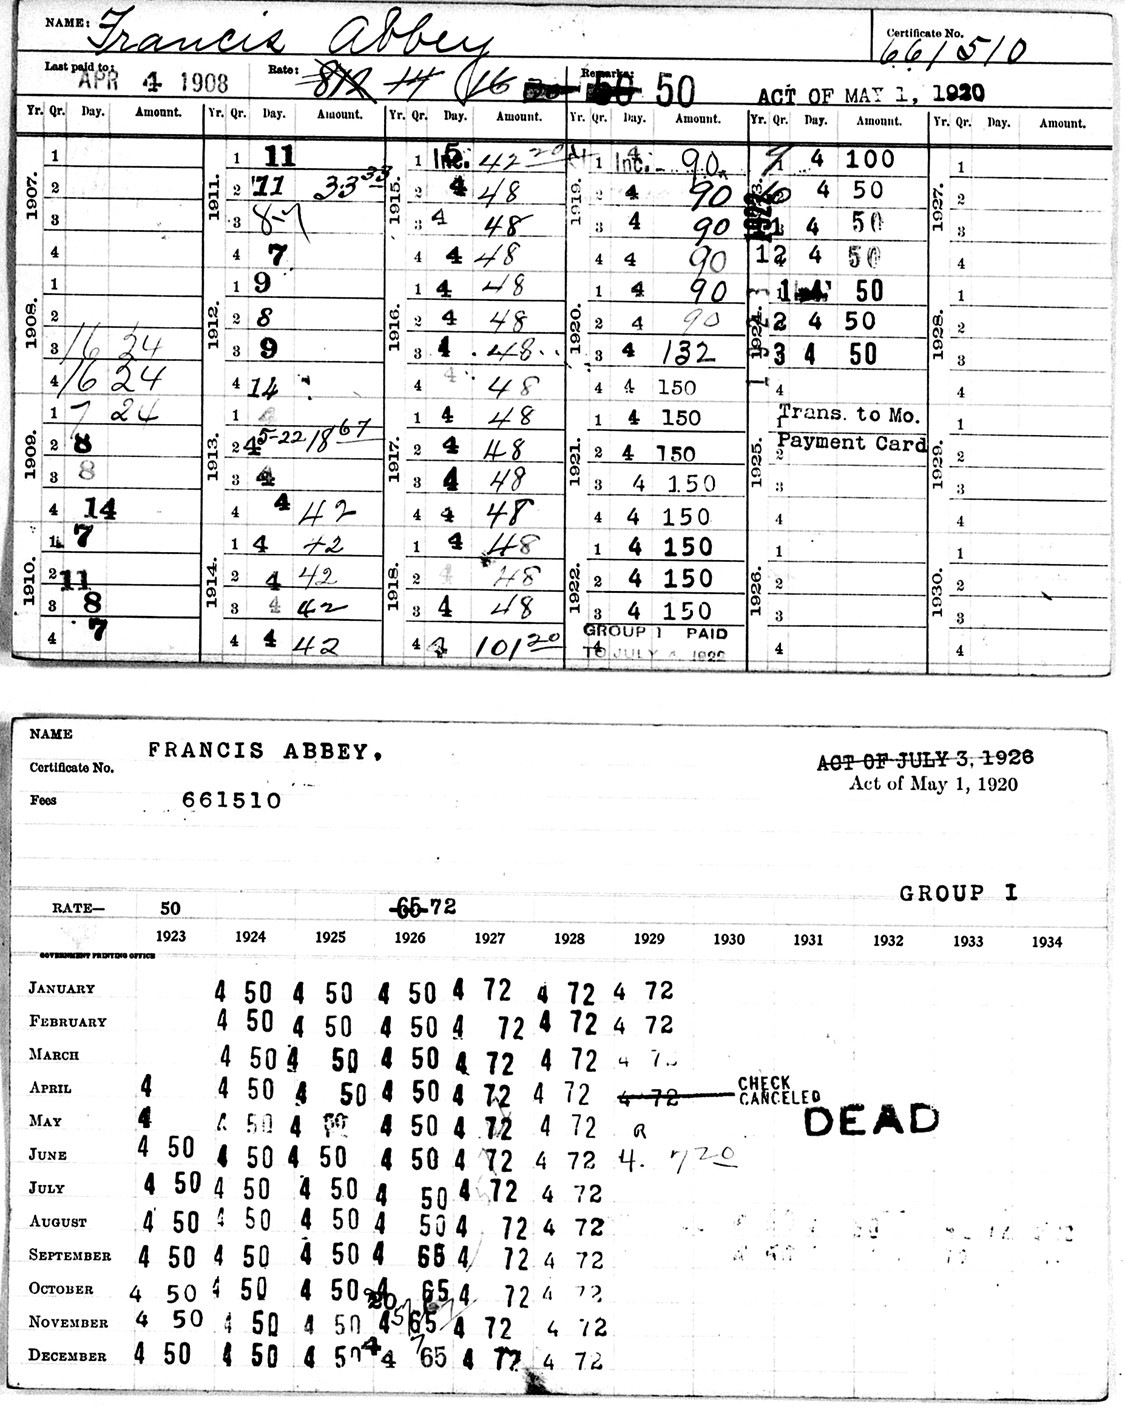 NAME: Francis Abbey Certificate No. 661510
Last paid to: APR 4 1908 Rate: 812 14 16 Remarks: 50 50 ACT OF MAY 1, 1920
Yr. Qr. Day. Amount. Yr. Qr. Day. Amount. Yr. Qr. Day. Amount. Yr. Qr. Day. Amount. Yr. Qr. Day. Amount. Yr. Qr. Day. Amount.
1907. 1
2
3
4
1908. 1
2
3 16 24
4 16 24
1909. 1 7 24
2 8
3 8
4 14
1910. 1 7
2 11
3 8
4 7
1911. 1 11
2 11 33 33
3 8-7
4 7
1912. 1 9
2 8
3 9
4 14
1913. 1 4
2 4 5-22 18 67
3 4
4 4 42
1914. 1 4 42
2 4 42
3 4 42
4 4 42
1915. 1 Inc. 42 20
2 4 48
3 4 48
4 4 48
1916. 1 4 48
2 4 48
3 4 48
4 4 48
1917. 1 4 48
2 4 48
3 4 48
4 4 48
1918. 1 4 48
2 4 48
3 4 48
4 4 101 20
1919. 1 Inc. 4 90
2 4 90
3 4 90
4 4 90
1920. 1 4 90
2 4 90
3 4 132
4 4 150
1921. 1 4 150
2 4 150
3 4 150
4 4 150
1922. 1 4 150
2 4 150
3 4 150
4 GROUP 1 PAID
TO JULY 4 1922
9 4 100
4 50
4 50
12 4 50
1924. 1 4 50
2 4 50
3 4 50
4
1925. 1 Trans. to Mo.
2 Payment Card
3
4
1926. 1
2
3
4
1927. 1
2
3
4
1928. 1
2
3
4
1929. 1
2
3
4
1930. 1
2
3
4
NAME FRANCIS ABBEY,
ACT OF JULY 3, 1926
Certificate No.
Act of May 1, 1920
Fees 661510
GROUP I
RATE— 50 65 72
1923 1924 1925 1926 1927 1928 1929 1930 1931 1932 1933 1934
GOVERNMENT PRINTING OFFICE
JANUARY 4 50 4 50 4 50 4 72 4 72 4 72
FEBRUARY 4 50 4 50 4 50 4 72 4 72 4 72
MARCH 4 50 4 50 4 50 4 72 4 72 4 72
APRIL 4 4 50 4 50 4 50 4 72 4 72 4 72 CHECK CANCELED
MAY 4 4 50 4 50 4 50 4 72 4 72 DEAD
JUNE 4 50 4 50 4 50 4 50 4 72 4 72 4. 7 20
JULY 4 50 4 50 4 50 4 50 4 72 4 72
AUGUST 4 50 4 50 4 50 4 50 4 72 4 72
SEPTEMBER 4 50 4 50 4 50 4 65 4 72 4 72
OCTOBER 4 50 4 50 4 50 4 65 4 72 4 72
NOVEMBER 4 50 4 50 4 50 4 65 4 72 4 72
DECEMBER 4 50 4 50 4 50 4 65 4 72 4 72